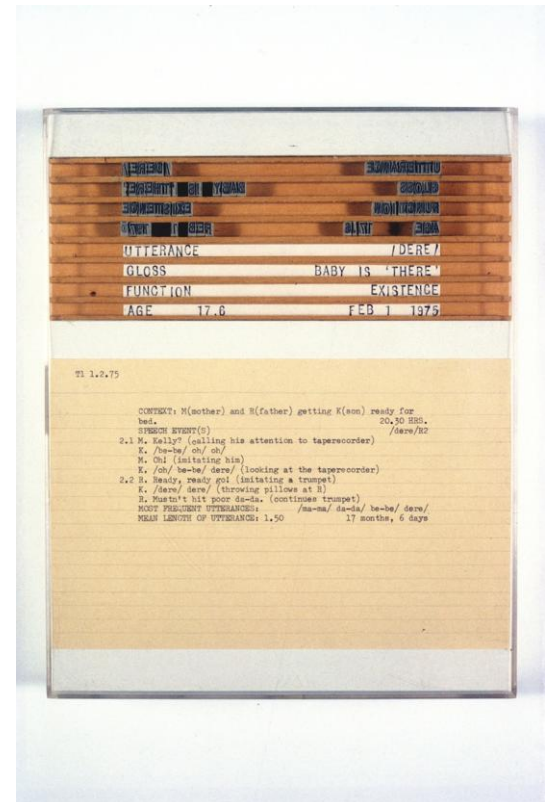 UTTERANCE /DERE/
GLOSS BABY IS 'THERE'
FUNCTION EXISTENCE
AGE 17.6 FEB 1 1975
UTTERANCE /DERE/
GLOSS BABY IS 'THERE'
FUNCTION EXISTENCE
AGE 17.6 FEB 1 1975
T1 1.2.75
CONTEXT: M(mother) and R(father) getting K(son) ready for
bed. 20.30 HRS.
SPEECH EVENT(S) /dere/R2
2.1 M. Kelly? (calling his attention to taperecorder)
K. /be-be/ oh/ oh/
M. Oh! (imitating him)
K. /oh/ be-be/ dere/ (looking at the taperecorder)
2.2 R. Ready, ready go! (imitating a trumpet)
K. /dere/ dere/ (throwing pillows at R)
R. Mustn't hit poor da-da. (continues trumpet)
MOST FREQUENT UTTERANCES: /ma-ma/ da-da/ be-be/ dere/
MEAN LENGTH OF UTTERANCE: 1.50 17 months, 6 days